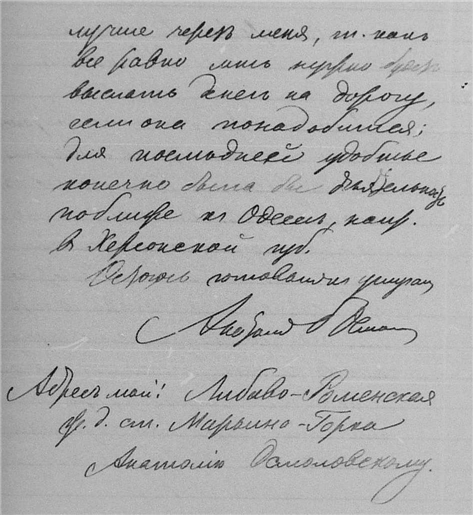 лучше черезъ меня, т. какъ
все равно мнѣ нужно будетъ
выслать денегъ на дорогу,
если она понадобится;
для послѣдней удобнѣе
конечно была бы дѣятельность
поближе къ Одессѣ, напр.
въ Херсонской губ.
Остаюсь готовый къ услугамъ
Анатолій Осмол
Адресъ мой: Либаво-Роменская
ж. д. ст. Марьино-Горка
Анатолію Осмоловскому.